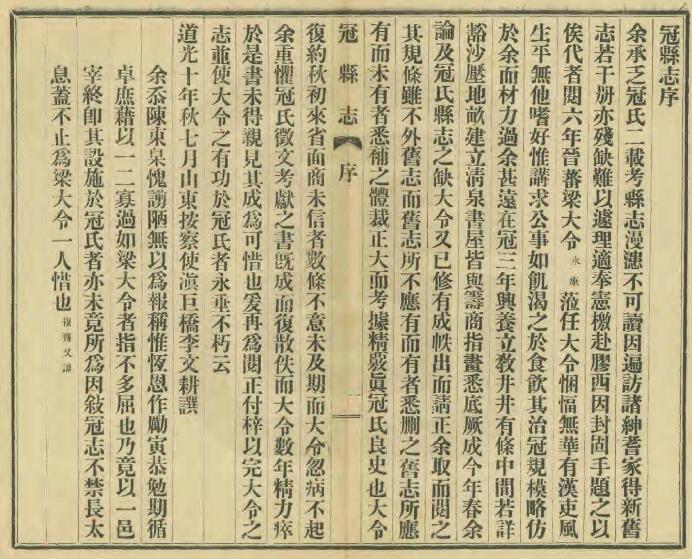 冠縣志序
余承乏冠氏二載考縣志漫漶不可讀因遍訪諸紳耆家得新舊
志若干册亦殘缺難以遽理適奉憲檄赴膠西因封固手題之以
俟代者閱六年晉蕃梁大令永康蒞任大令悃愊無華有漢吏風
生平無他嗜好惟講求公事如飢渴之於食飲其治冠規模略仿
於余而材力過余甚遠在冠三年興養立教井井有條中間若詳
豁沙壓地畝建立清泉書屋皆與籌商指畫悉底厥成今年春余
論及冠氏縣志之缺大令又已修有成帙出而請正余取而閱之
其規條雖不外舊志而舊志所不應有而有者悉删之舊志所應
有而未有者悉補之體裁正大而考據精嚴眞冠氏良史也大令
冠縣志
序
一
復約秋初來省面商未信者數條不意未及期而大令忽病不起
余重懼冠氏徵文考獻之書旣成而復散佚而大令數年精力瘁
於是書未得親見其成爲可惜也爰再爲閱正付梓以完大令之
志並使大令之有功於冠氏者永垂不朽云
道光十年秋七月山東按察使滇巨橋李文耕譔
余忝陳東臬愧謭陋無以爲報稱惟恆恩作勵寅恭勉期循
卓庶藉以一二寡過如梁大令者指不多屈也乃竟以一邑
宰終卽其設施於冠氏者亦未竟所爲因敍冠志不禁長太
息蓋不止爲梁大令一人惜也複齋又識